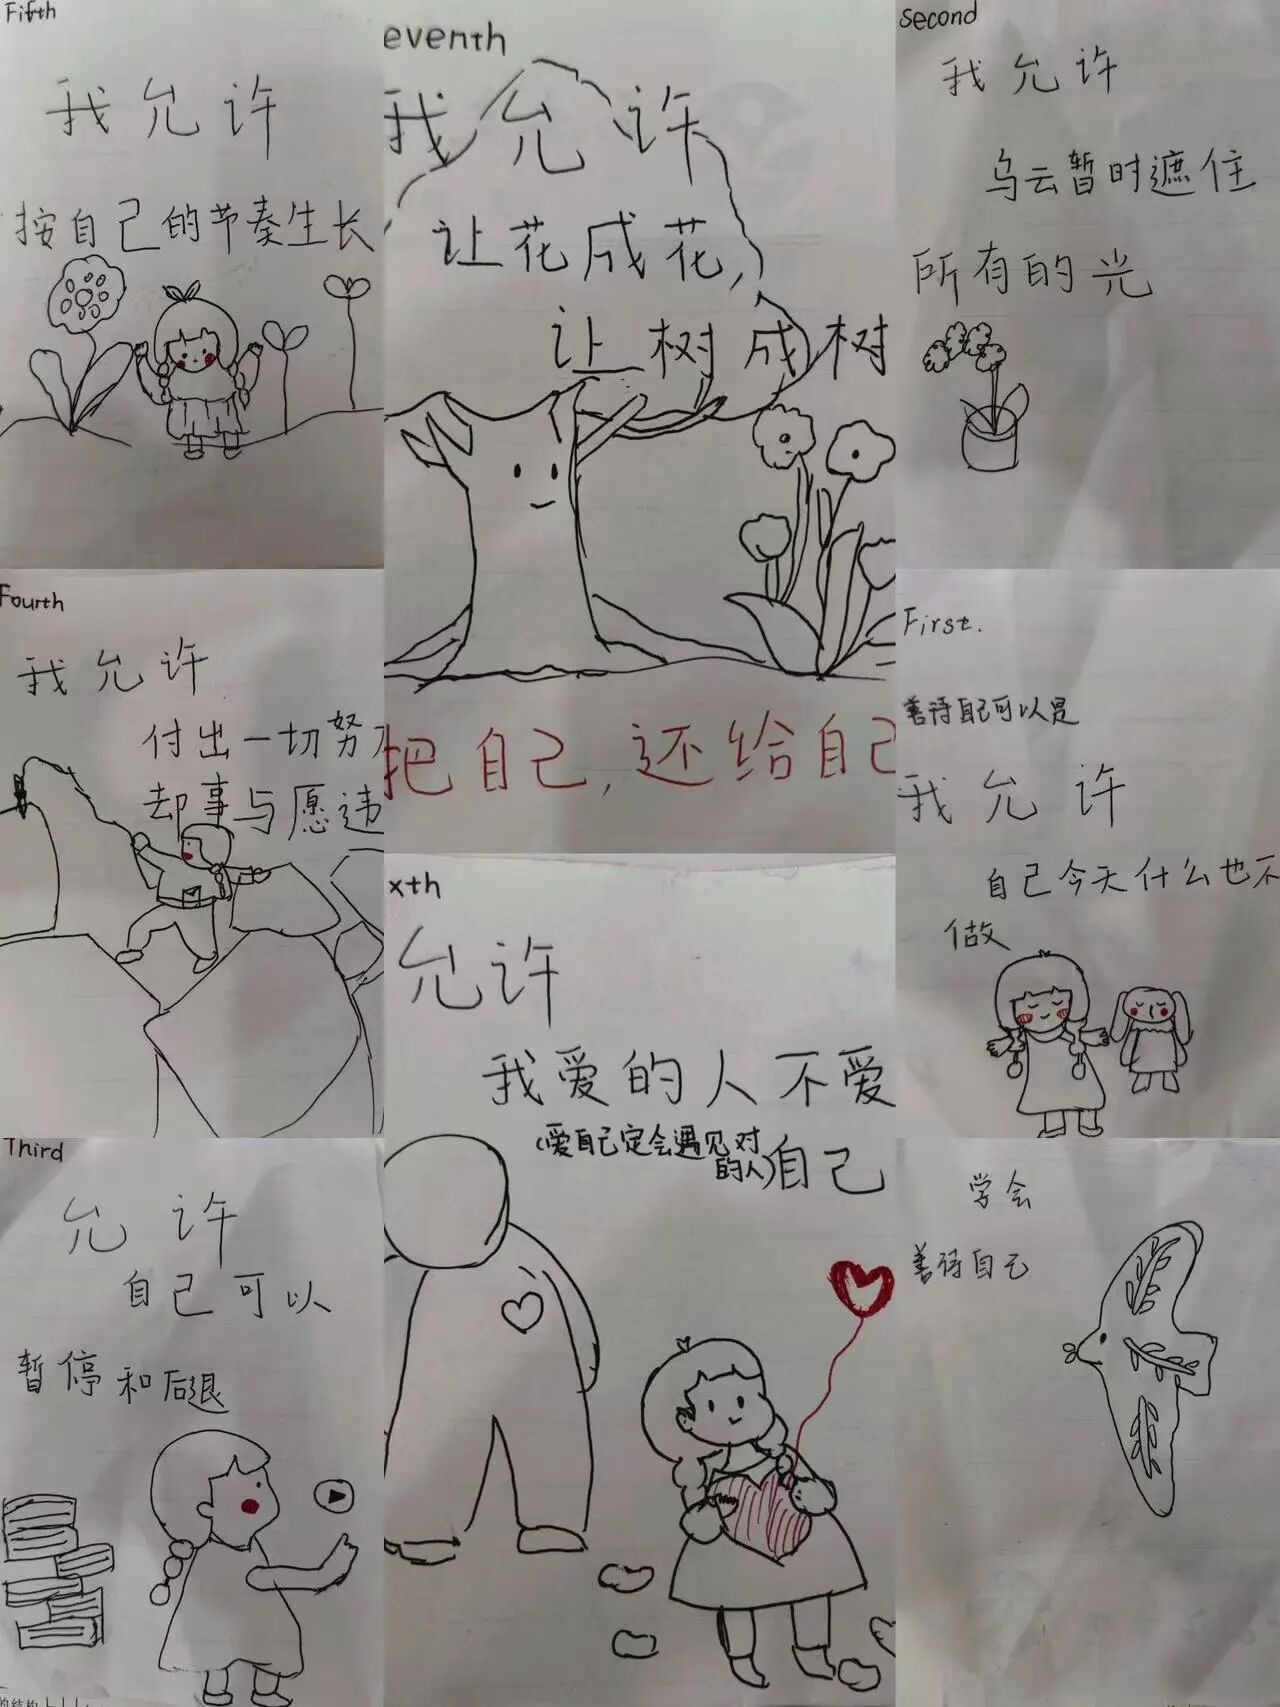 Fifth
我允许
按自己的节奏生长
eventh
我允许
让花成花,
让树成树
把自己,还给自己
second
我允许
乌云暂时遮住
所有的光
Fourth
我允许
付出一切努
却事与愿违
First.
善待自己可以是
我允许
自己今天什么也不
做
xth
允许
我爱的人不爱
(爱自己定会遇见对
的人)
自己
Third
允许
自己可以
暂停和后退
学会
善待自己